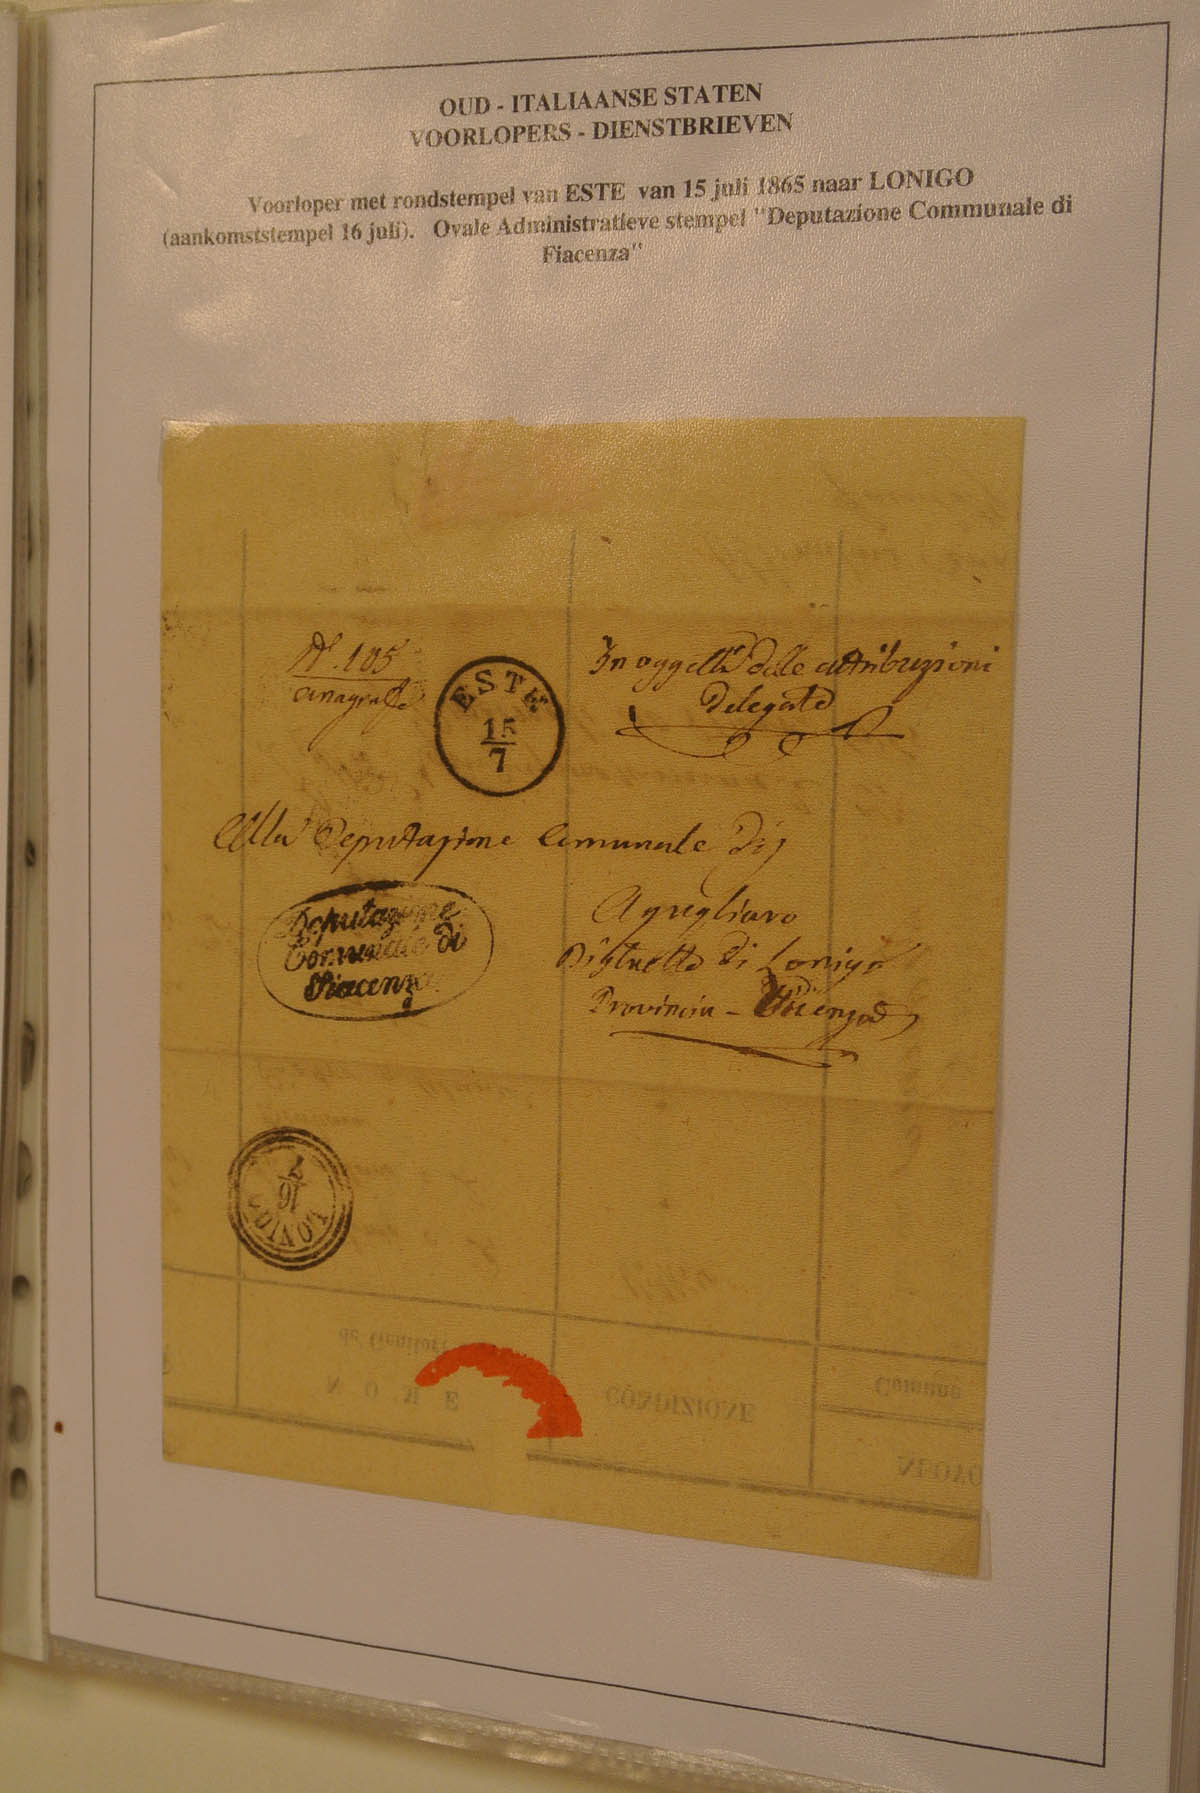 OUD - ITALIAANSE STATEN
VOORLOPERS - DIENSTBRIEVEN
Voorloper met rondstempel van ESTE van 15 juli 1865 naar LONIGO
(aankomststempel 16 juli). Ovale Administratieve stempel "Deputazione Communale di
Fiacenza"
N°. 105
anagrafe
ESTE
15
7
In oggetti dalle attribuzioni
delegate
Alla Deputazione Comunale di
Agugliaro
Distretto di Lonigo
Provincia - di Vicenza
Deputazione
Comunale di
Piacenza
LONIGO
16
7
de' Genitori
NOME
CONDIZIONE
Comune